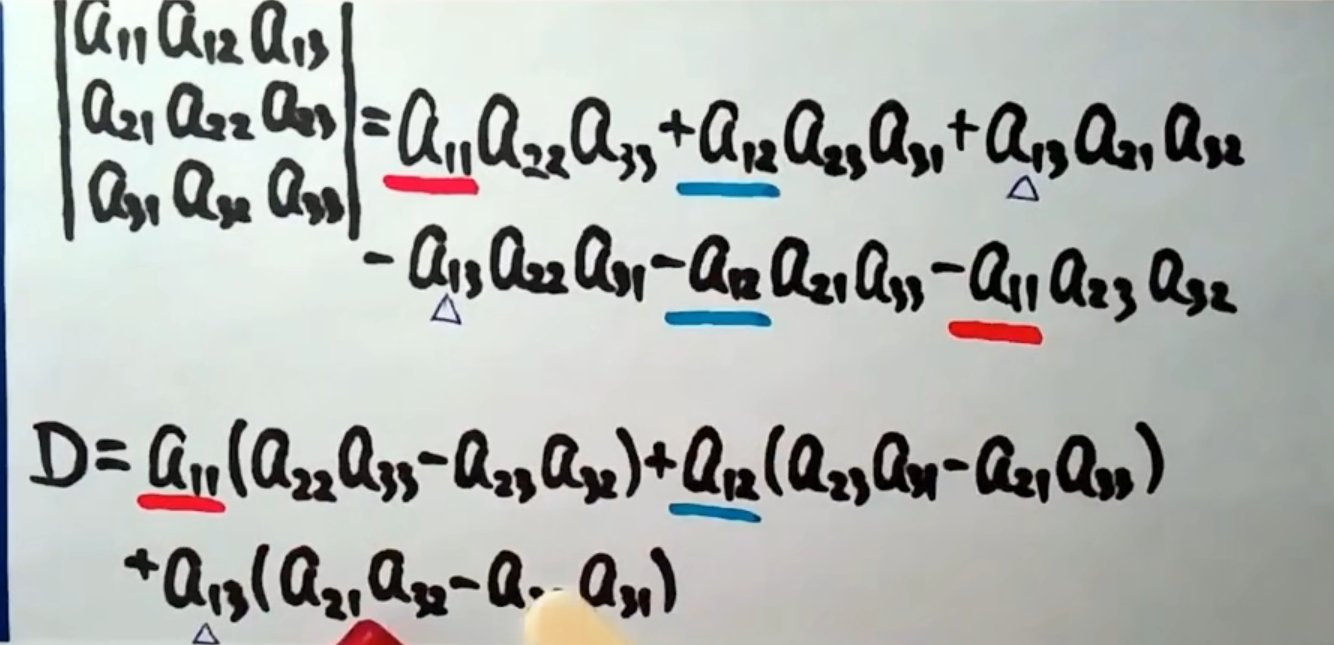 |a₁₁ a₁₂ a₁₃|
|a₂₁ a₂₂ a₂₃| = a₁₁a₂₂a₃₃ + a₁₂a₂₃a₃₁ + a₁₃a₂₁a₃₂
|a₃₁ a₃₂ a₃₃|
- a₁₃a₂₂a₃₁ - a₁₂a₂₁a₃₃ - a₁₁a₂₃a₃₂
D = a₁₁(a₂₂a₃₃ - a₂₃a₃₂) + a₁₂(a₂₃a₃₁ - a₂₁a₃₃)
+ a₁₃(a₂₁a₃₂ - a a₃₁)